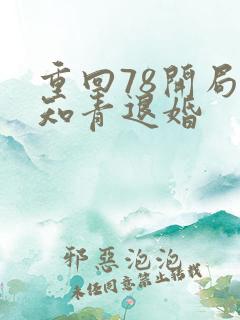 重回78開局
知青退婚
邪惡泡泡
未任同意禁止转载